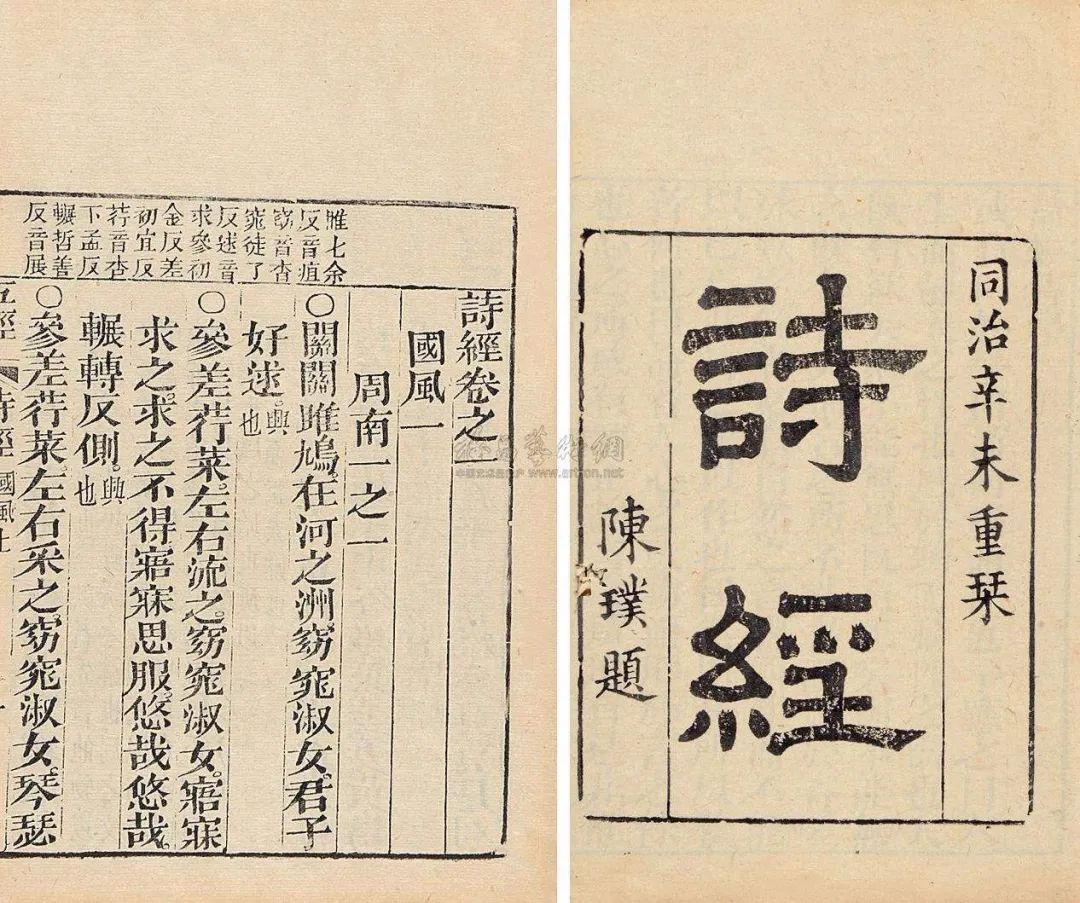 同治辛未重栞
詩經
陳璞題
雎七余
反音疽
窈音杳
窕徒了
反逑音
求參初
金反差
初宜反
荇音杏
下孟反
輾哲善
反音展
詩經卷之一
國風一
周南一之一
○關關雎鳩。在河之洲。窈窕淑女。君子
好逑。興也
○參差荇菜。左右流之。窈窕淑女。寤寐
求之。求之不得。寤寐思服。悠哉悠哉。
輾轉反側。興也
○參差荇菜。左右采之。窈窕淑女。琴瑟
五經 詩經 國風上
www.artron.net